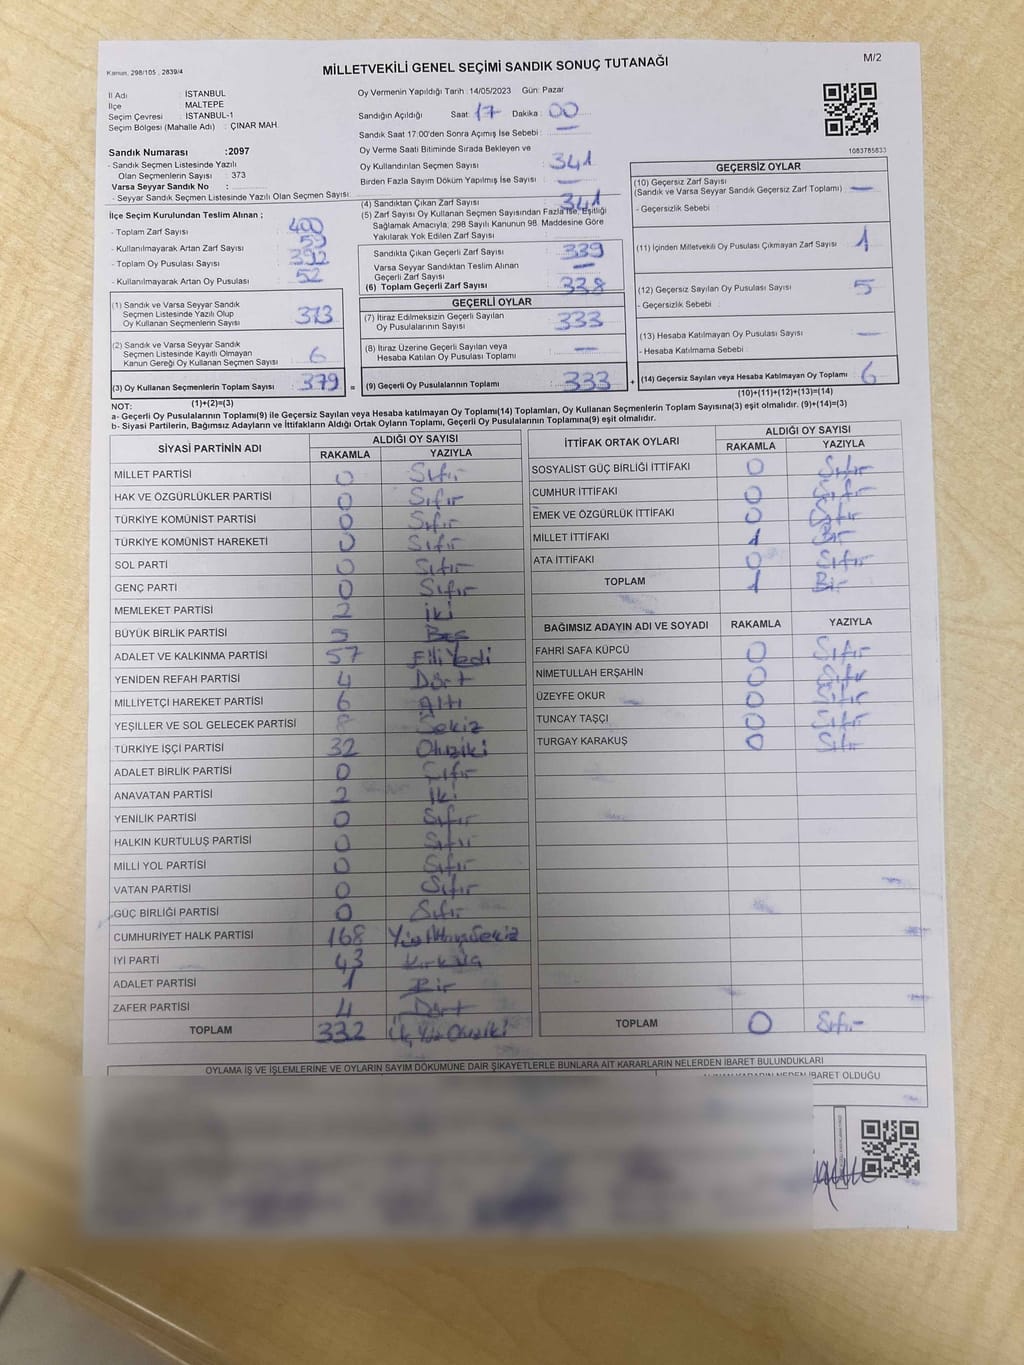 Kanun, 298/105 , 2839/4
MİLLETVEKİLİ GENEL SEÇİMİ SANDIK SONUÇ TUTANAĞI
M/2
İl Adı : İSTANBUL
İlçe MALTEPE
Seçim Çevresi : İSTANBUL-1
Seçim Bölgesi (Mahalle Adı) : ÇINAR MAH.
Sandık Numarası :2097
- Sandık Seçmen Listesinde Yazılı
Olan Seçmenlerin Sayısı : 373
Varsa Seyyar Sandık No :
- Seyyar Sandık Seçmen Listesinde Yazılı Olan Seçmen Sayısı:
Oy Vermenin Yapıldığı Tarih :14/05/2023 Gün: Pazar
Sandığın Açıldığı Saat: 17 Dakika : 00
Sandık Saat 17:00'den Sonra Açımış İse Sebebi : —
Oy Verme Saati Bitiminde Sırada Bekleyen ve
Oy Kullandırılan Seçmen Sayısı : 341
Birden Fazla Sayım Döküm Yapılmış İse Sayısı : —
1083785833
İlçe Seçim Kurulundan Teslim Alınan ;
- Toplam Zarf Sayısı : 400
- Kullanılmayarak Artan Zarf Sayısı : 59
- Toplam Oy Pusulası Sayısı : 392
- Kullanılmayarak Artan Oy Pusulası : 52
(1) Sandık ve Varsa Seyyar Sandık
Seçmen Listesinde Yazılı Olup
Oy Kullanan Seçmenlerin Sayısı : 373
(2) Sandık ve Varsa Seyyar Sandık
Seçmen Listesinde Kayıtlı Olmayan
Kanun Gereği Oy Kullanan Seçmen Sayısı : 6
(3) Oy Kullanan Seçmenlerin Toplam Sayısı : 379
(1)+(2)=(3)
(4) Sandıktan Çıkan Zarf Sayısı : 341
(5) Zarf Sayısı Oy Kullanan Seçmen Sayısından Fazla İse, Eşitliği
Sağlamak Amacıyla; 298 Sayılı Kanunun 98. Maddesine Göre
Yakılarak Yok Edilen Zarf Sayısı :
Sandıkta Çıkan Geçerli Zarf Sayısı : 339
Varsa Seyyar Sandıktan Teslim Alınan
Geçerli Zarf Sayısı : —
(6) Toplam Geçerli Zarf Sayısı : 338
GEÇERLİ OYLAR
(7) İtiraz Edilmeksizin Geçerli Sayılan
Oy Pusulalarının Sayısı : 333
(8) İtiraz Üzerine Geçerli Sayılan veya
Hesaba Katılan Oy Pusulası Toplamı : —
= (9) Geçerli Oy Pusulalarının Toplamı : 333
GEÇERSİZ OYLAR
(10) Geçersiz Zarf Sayısı : —
(Sandık ve Varsa Seyyar Sandık Geçersiz Zarf Toplamı)
- Geçersizlik Sebebi :
(11) İçinden Milletvekili Oy Pusulası Çıkmayan Zarf Sayısı : 1
(12) Geçersiz Sayılan Oy Pusulası Sayısı : 5
- Geçersizlik Sebebi :
(13) Hesaba Katılmayan Oy Pusulası Sayısı : —
- Hesaba Katılmama Sebebi :
+ (14) Geçersiz Sayılan veya Hesaba Katılmayan Oy Toplamı : 6
(10)+(11)+(12)+(13)=(14)
NOT:
a- Geçerli Oy Pusulalarının Toplamı(9) ile Geçersiz Sayılan veya Hesaba katılmayan Oy Toplamı(14) Toplamları, Oy Kullanan Seçmenlerin Toplam Sayısına(3) eşit olmalıdır. (9)+(14)=(3)
b- Siyasi Partilerin, Bağımsız Adayların ve İttifakların Aldığı Ortak Oyların Toplamı, Geçerli Oy Pusulalarının Toplamına(9) eşit olmalıdır.
SİYASİ PARTİNİN ADI ALDIĞI OY SAYISI
RAKAMLA YAZIYLA
MİLLET PARTİSİ 0 Sıfır
HAK VE ÖZGÜRLÜKLER PARTİSİ 0 Sıfır
TÜRKİYE KOMÜNİST PARTİSİ 0 Sıfır
TÜRKİYE KOMÜNİST HAREKETİ 0 Sıfır
SOL PARTİ 0 Sıfır
GENÇ PARTİ 0 Sıfır
MEMLEKET PARTİSİ 2 iki
BÜYÜK BİRLİK PARTİSİ 5 Beş
ADALET VE KALKINMA PARTİSİ 57 ElliYedi
YENİDEN REFAH PARTİSİ 4 Dört
MİLLİYETÇİ HAREKET PARTİSİ 6 Altı
YEŞİLLER VE SOL GELECEK PARTİSİ 8 Sekiz
TÜRKİYE İŞÇİ PARTİSİ 32 Otuziki
ADALET BİRLİK PARTİSİ 0 Sıfır
ANAVATAN PARTİSİ 2 İki
YENİLİK PARTİSİ 0 Sıfır
HALKIN KURTULUŞ PARTİSİ 0 Sıfır
MİLLİ YOL PARTİSİ 0 Sıfır
VATAN PARTİSİ 0 Sıfır
GÜÇ BİRLİĞİ PARTİSİ 0 Sıfır
CUMHURİYET HALK PARTİSİ 168 YüzAltmışSekiz
İYİ PARTİ 43 Kırk
ADALET PARTİSİ 1 Bir
ZAFER PARTİSİ 4 Dört
TOPLAM 332 Üç Yüz Otuziki
İTTİFAK ORTAK OYLARI ALDIĞI OY SAYISI
RAKAMLA YAZIYLA
SOSYALİST GÜÇ BİRLİĞİ İTTİFAKI 0 Sıfır
CUMHUR İTTİFAKI 0 Sıfır
EMEK VE ÖZGÜRLÜK İTTİFAKI 0 Sıfır
MİLLET İTTİFAKI 1 Bir
ATA İTTİFAKI 0 Sıfır
TOPLAM 1 Bir
BAĞIMSIZ ADAYIN ADI VE SOYADI RAKAMLA YAZIYLA
FAHRİ SAFA KÜPCÜ 0 Sıfır
NİMETULLAH ERŞAHİN 0 Sıfır
ÜZEYFE OKUR 0 Sıfır
TUNCAY TAŞÇI 0 Sıfır
TURGAY KARAKUŞ 0 Sıfır
TOPLAM 0 Sıfır
OYLAMA İŞ VE İŞLEMLERİNE VE OYLARIN SAYIM DÖKÜMÜNE DAİR ŞİKAYETLERLE BUNLARA AİT KARARLARIN NELERDEN İBARET BULUNDUKLARI
İBARET OLDUĞU